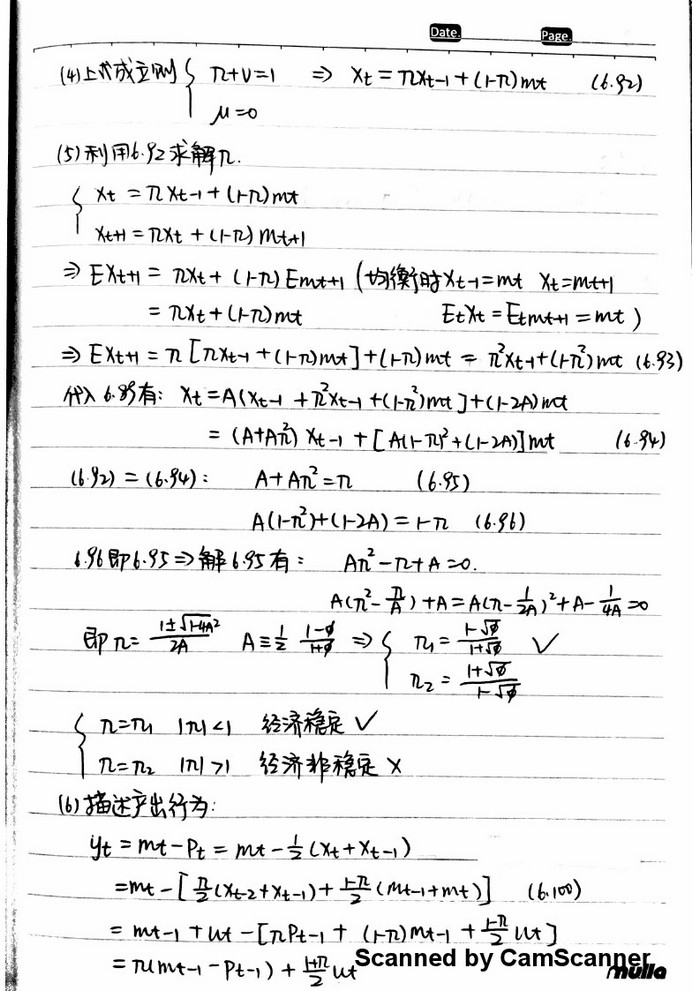 Date. Page.
(4) 上式成立则 { π+ν=1 ⇒ Xt = πXt-1 + (1-π)mt (6.92)
μ=0
(5) 利用6.92求解π.
{ Xt = πXt-1 + (1-π)mt
Xt+1 = πXt + (1-π)mt+1
⇒ EXt+1 = πXt + (1-π)Emt+1 (均衡时Xt-1=mt Xt=mt+1
= πXt + (1-π)mt EtXt = Etmt+1 = mt)
⇒ EXt+1 = π[πXt-1 + (1-π)mt] + (1-π)mt = π²Xt-1 + (1-π²)mt (6.93)
代入 6.89有: Xt = A(Xt-1 + π²Xt-1 + (1-π²)mt] + (1-2A)mt
= (A+Aπ²) Xt-1 + [A(1-π)² + (1-2A)]mt (6.94)
(6.92) = (6.94): A+Aπ²=π (6.95)
A(1-π²)+(1-2A) = 1-π (6.96)
6.96即6.95 ⇒ 解6.95有: Aπ²-π+A=0.
A(π²-π/A)+A = A(π-1/2A)²+A-1/4A=0
即π= (1±√1-4A²)/2A A≡1/2 (1-φ)/(1+φ) ⇒ { π1 = (1-√φ)/(1+√φ) ✓
π2 = (1+√φ)/(1-√φ)
{ π=π1 |π|<1 经济稳定 ✓
π=π2 |π|>1 经济非稳定 ×
(6) 描述产出行为:
yt = mt-Pt = mt - 1/2(Xt+Xt-1)
=mt-[π/2(Xt-2+Xt-1) + (1-π)/2(mt-1+mt)] (6.100)
= mt-1 + ut - [πPt-1 + (1-π)mt-1 + (1-π)/2 ut]
= π(mt-1-Pt-1) + (1+π)/2 ut
Scanned by CamScanner
mulla